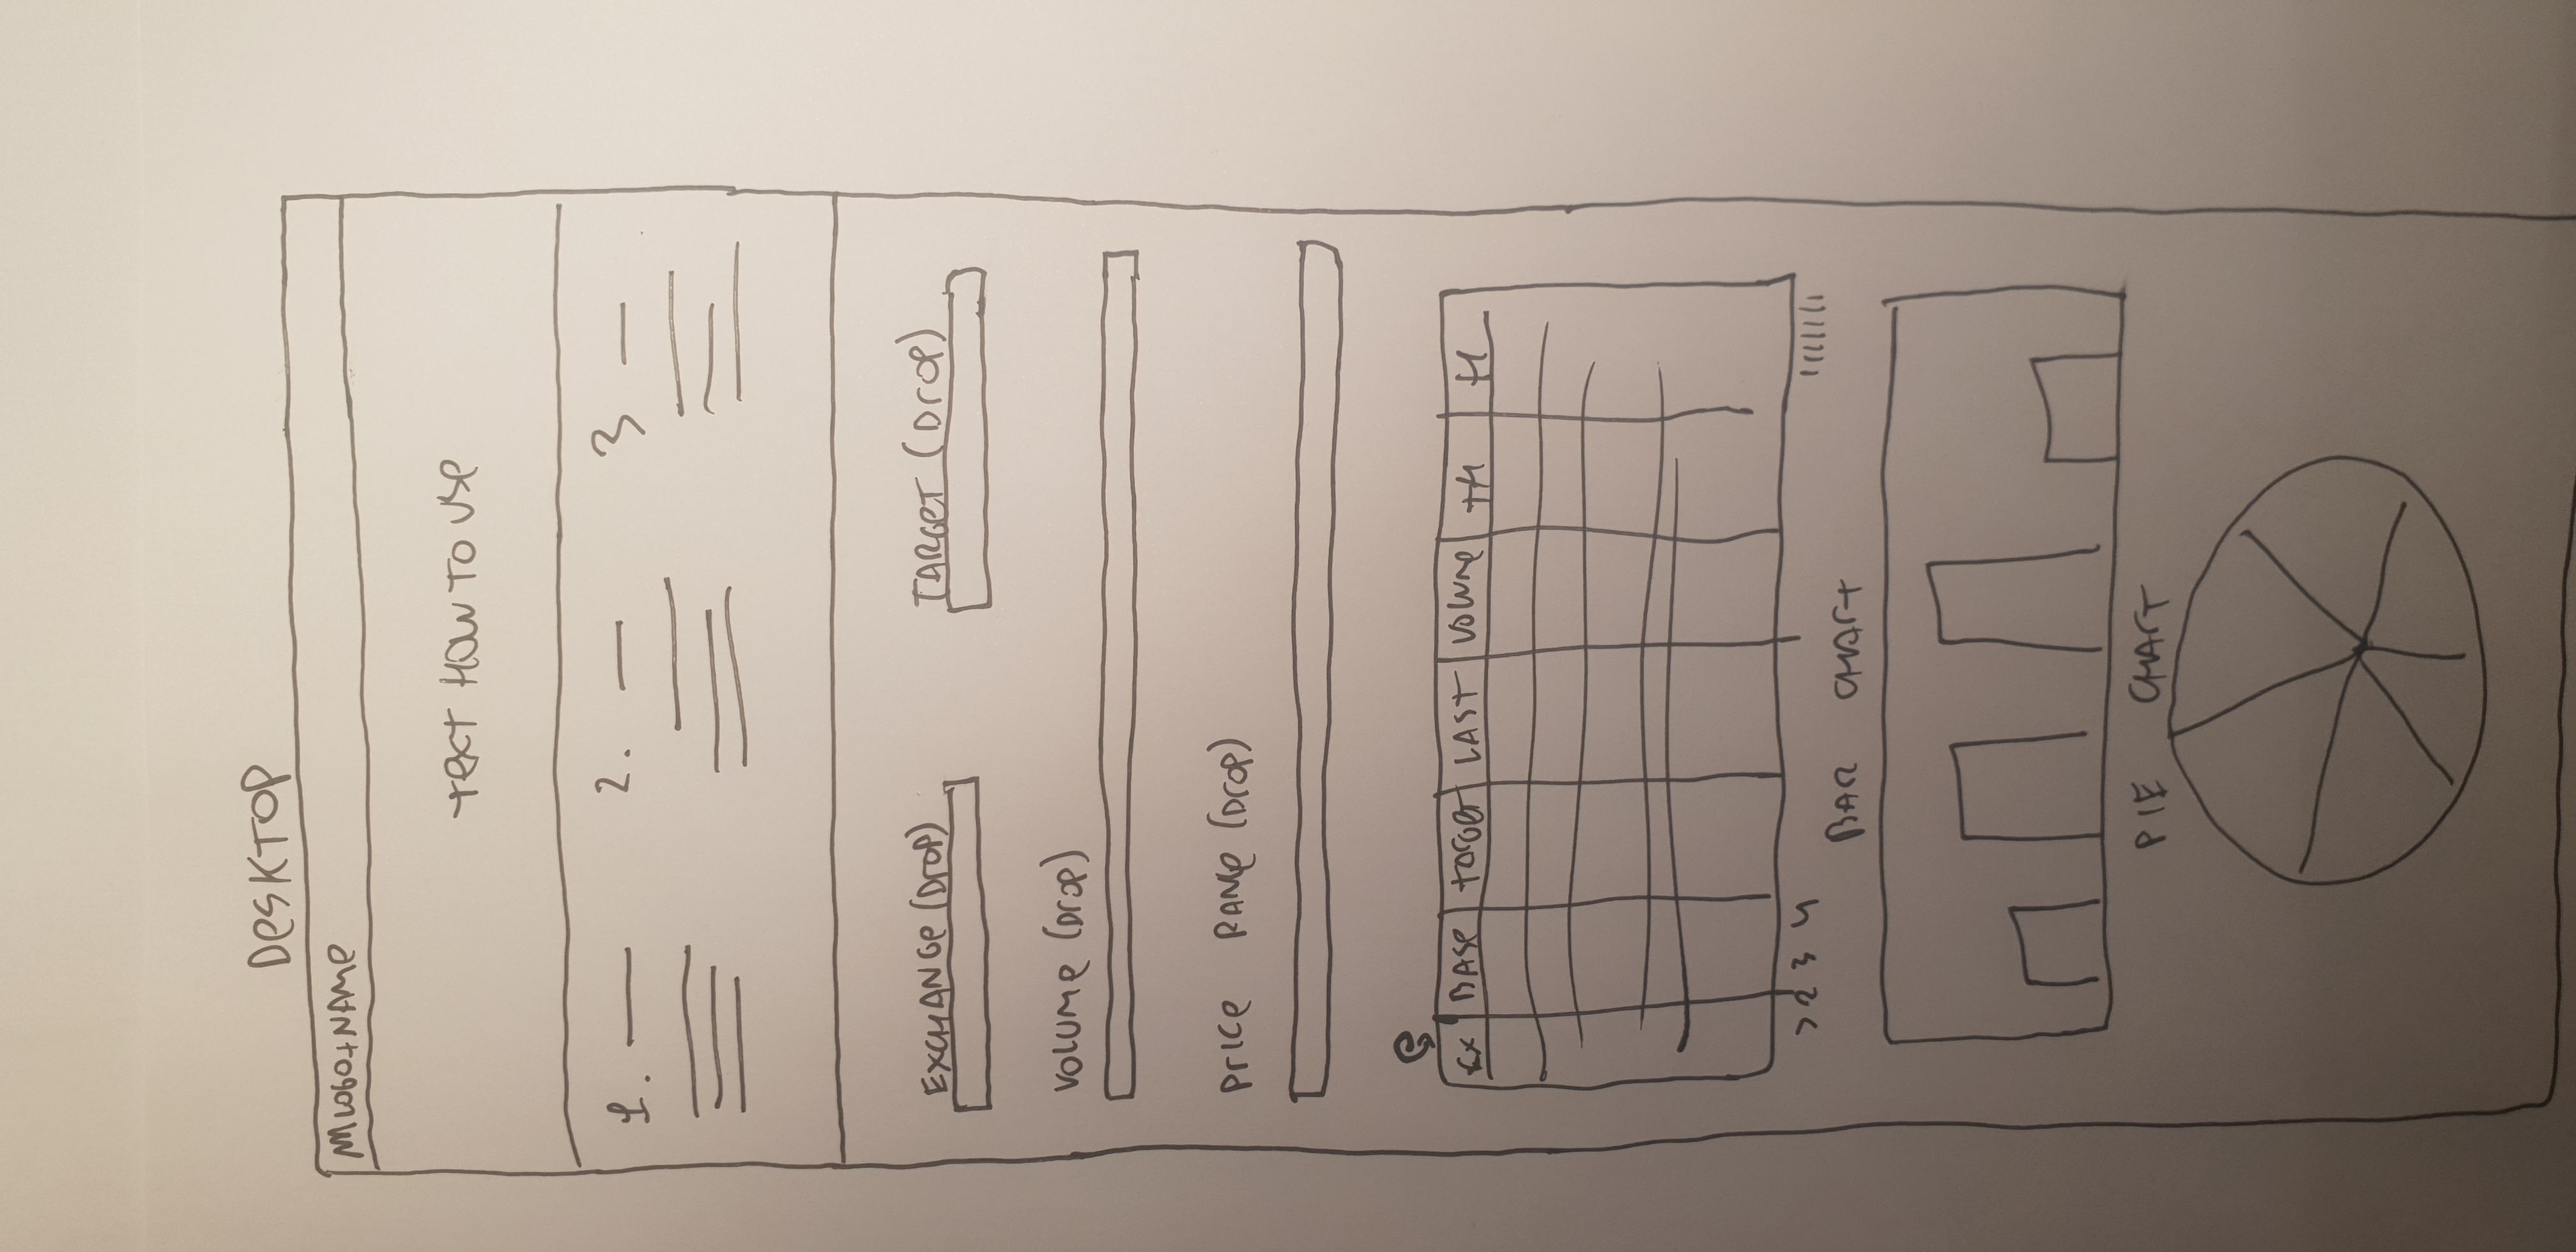 DESKTOP
LOGO+NAME
TEXT HOW TO USE
1. 2. 3
EXCHANGE (DROP) TARGET (DROP)
VOLUME (DROP)
PRICE RANGE (DROP)
EX BASE TARGET LAST VOLUME
2 3 4
BAR CHART
PIE CHART